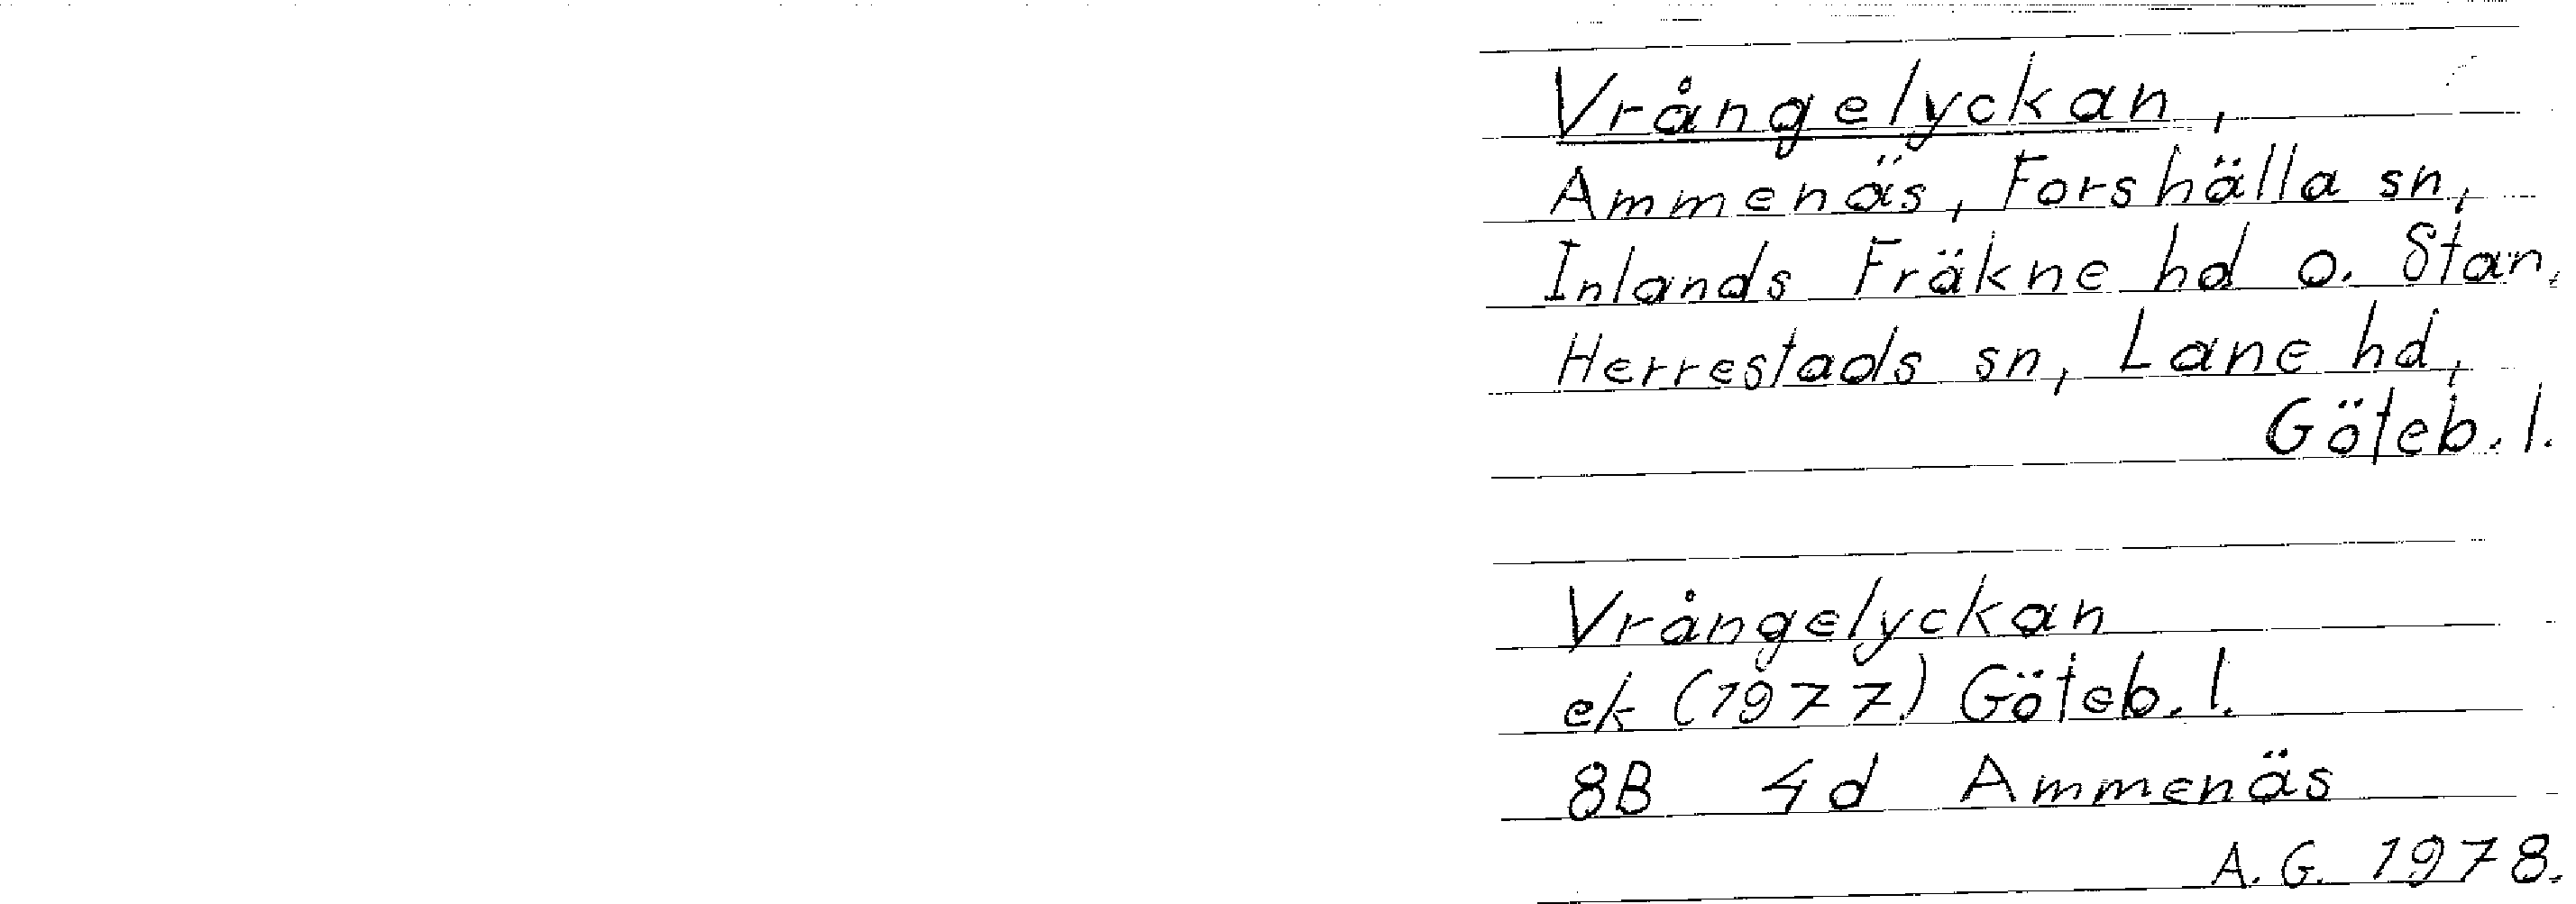 Vrångelyckan,
Ammenäs, Forshälla sn,
Inlands Fräkne hd o. Stan,
Herrestads sn, Lane hd,
Göteb. l.
Vrångelyckan
ek (1977) Göteb. l.
8B 4d Ammenäs
A. G. 1978.